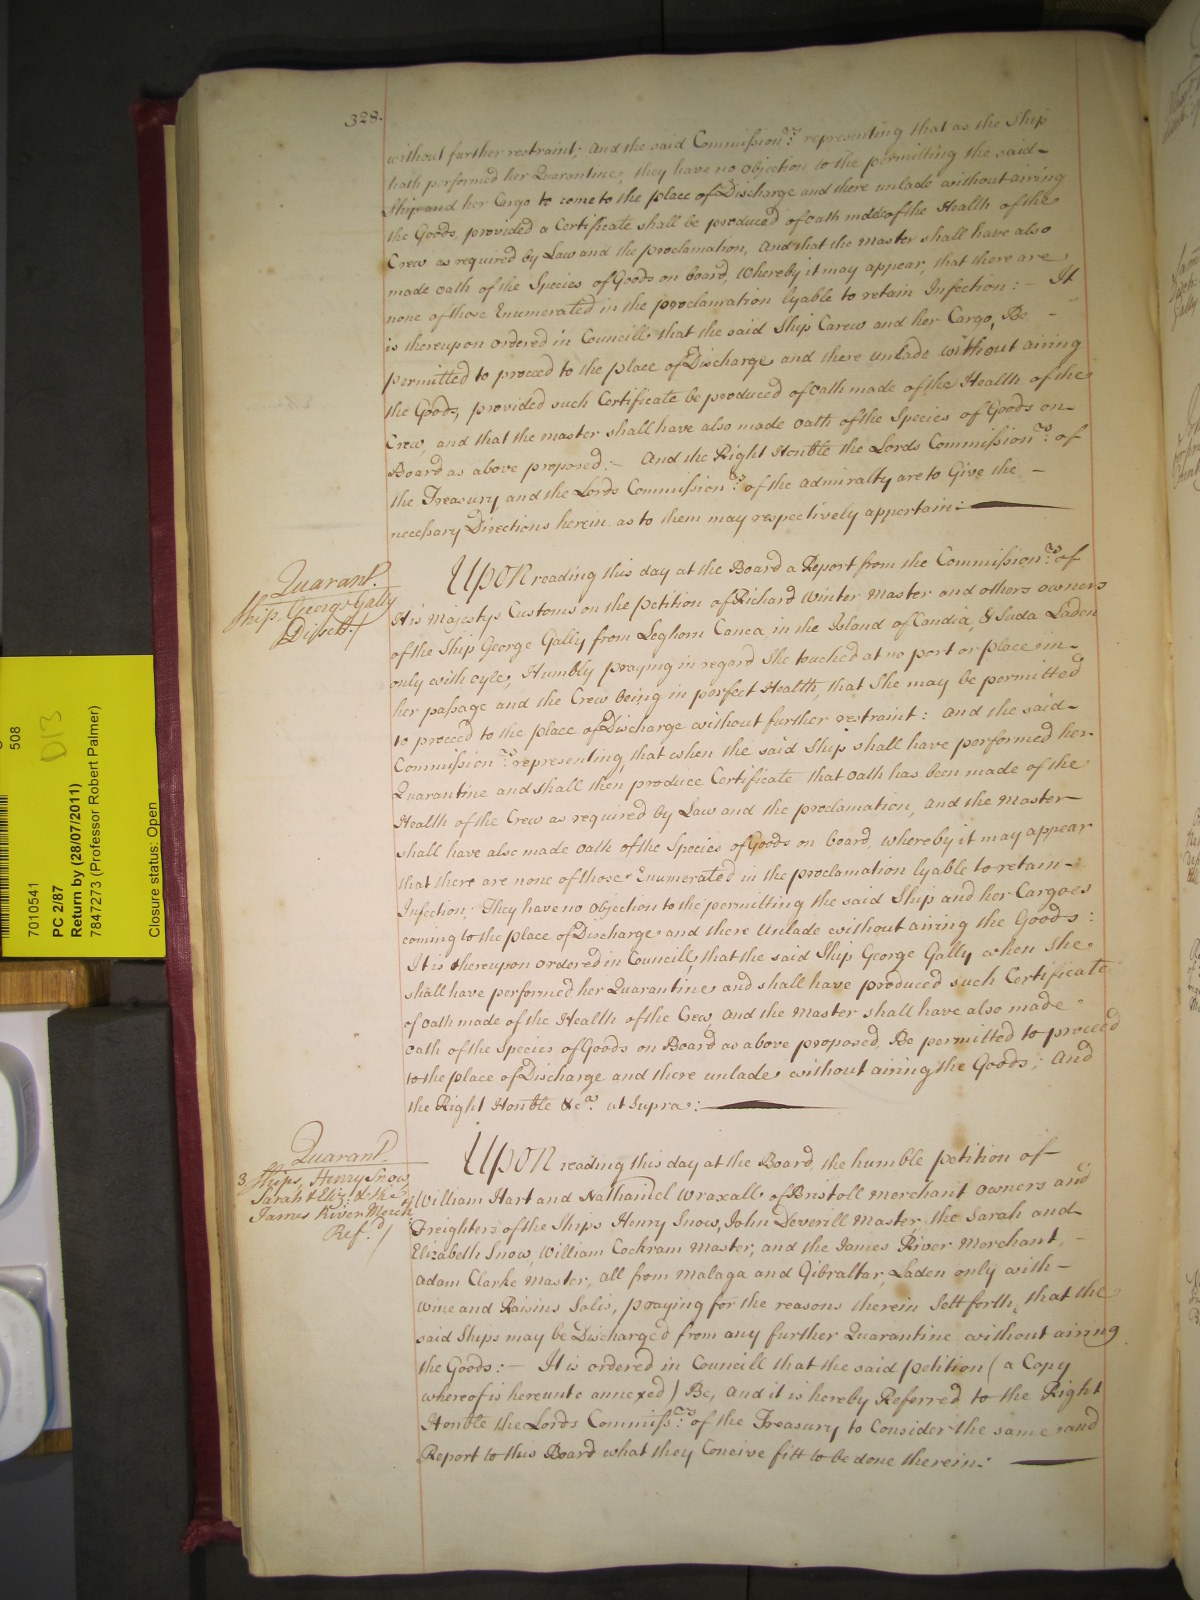 328.
without further restraint; And the said Commission.rs representing that as the Ship
hath performed her Quarantine, they have no Objection to the permitting the said
Ship and her Cargo to come to the place of Discharge and there unlade without airing
the Goods, provided a Certificate shall be produced of Oath made of the Health of the
Crew as required by Law and the proclamation, And that the Master shall have also
made Oath of the Species of Goods on board, Whereby it may appear, that there are
none of those Enumerated in the proclamation lyable to retain Infection: - It
is thereupon ordered in Councill that the said Ship Carew and her Cargo, Be -
permitted to proceed to the place of Discharge and there unlade without airing
the Goods, provided such Certificate be produced of Oath made of the Health of the
Crew, and that the master shall have also made Oath of the Species of Goods on
Board as above proposed: - And the Right Honble the Lords Commission.rs of
the Treasury and the Lords Commission.rs of the Admiralty are to Give the -
necessary Directions herein as to them may respectively appertain:
Quarant.
Ship George Gally
Discht.
Upon reading this day at the Board a Report from the Commission.rs of
His Majestys Customs on the petition of Richard Winter Master and others owners
of the Ship George Gally from Leghorn Canea, in the Island of Candia, & Suda Laden
only with oyle, Humbly praying in regard She touched at no port or place in
her passage and the Crew being in perfect Health, that She may be permitted
to proceed to the place of Discharge without further restraint: And the said
Commission.rs representing, that when the said Ship shall have performed her
Quarantine and shall then produce Certificate that Oath has been made of the
Health of the Crew as required by Law and the proclamation, and the Master
shall have also made Oath of the Species of Goods on board, whereby it may appear
that there are none of those Enumerated in the proclamation lyable to retain
Infection; They have no Objection to the permitting the said Ship and her Cargoes
coming to the place of Discharge and there Unlade without airing the Goods:
It is thereupon ordered in Councill, that the said Ship George Gally when she
shall have performed her Quarantine and shall have produced such Certificate
of Oath made of the Health of the Crew, and the Master shall have also made
Oath of the species of Goods on Board as above proposed, Be permitted to proceed
to the place of Discharge and there unlade without airing the Goods; And
the Right Honble &c.a ut Supra:
Quarant.
3 Ships, Henry Snow,
Sarah & Eliz: &
James River Merch.t
Ref.d
Upon reading this day at the Board, the humble petition of
William Hart and Nathaniel Wraxall of Bristoll Merchant Owners and
Freighters of the Ships Henry Snow, John Deverill Master, the Sarah and
Elizabeth Snow, William Cockram Master; and the James River Merchant, -
Adam Clarke Master, all from Malaga and Gibraltar, Laden only with -
Wine and Raisins Solis, praying for the reasons therein Sett forth, that the
said Ships may be Discharged from any further Quarantine without airing
the Goods: - It is ordered in Councill that the said petition (a Copy
whereof is hereunto annexed) Be, and it is hereby Referred to the Right
Honble the Lords Commiss.rs of the Treasury to Consider the same and
Report to this Board what they Conceive fitt to be done therein:
508
D13
7010541
PC 2/87
Return by (28/07/2011)
7847273 (Professor Robert Palmer)
Closure status: Open